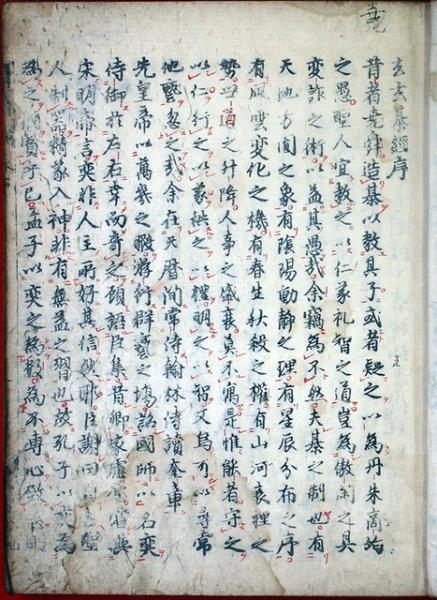 玄玄碁經序
昔者堯舜造碁以教其子或者疑之以為丹朱商均
之愚聖人宜教之以仁義礼智之道豈為傲閑之具
變詐之術以益其愚哉余竊為不然夫碁之制也有
天地方圓之象有陰陽動静之理有星辰分布之序
有風雲變化之機有春生秋殺之權有山河表裡之
勢世道之升降人事之盛衰莫不寓是惟能者守之
以仁行之以義秩之以禮明之以智又烏可以尋常
他藝忽之哉余在天曆間常侍翰林侍讀奎章
先皇帝以萬幾之暇游衍群藝之塲詔國師以名奕
侍御於左右幸而奇之顧語臣集昔卿家虞愿嘗與
宋明帝言奕非人主所好其信然耶臣謝曰聖
人制器精義入神非有無益之習也故孔子以奕為
為之猶賢乎已孟子以奕之為數為不專心致